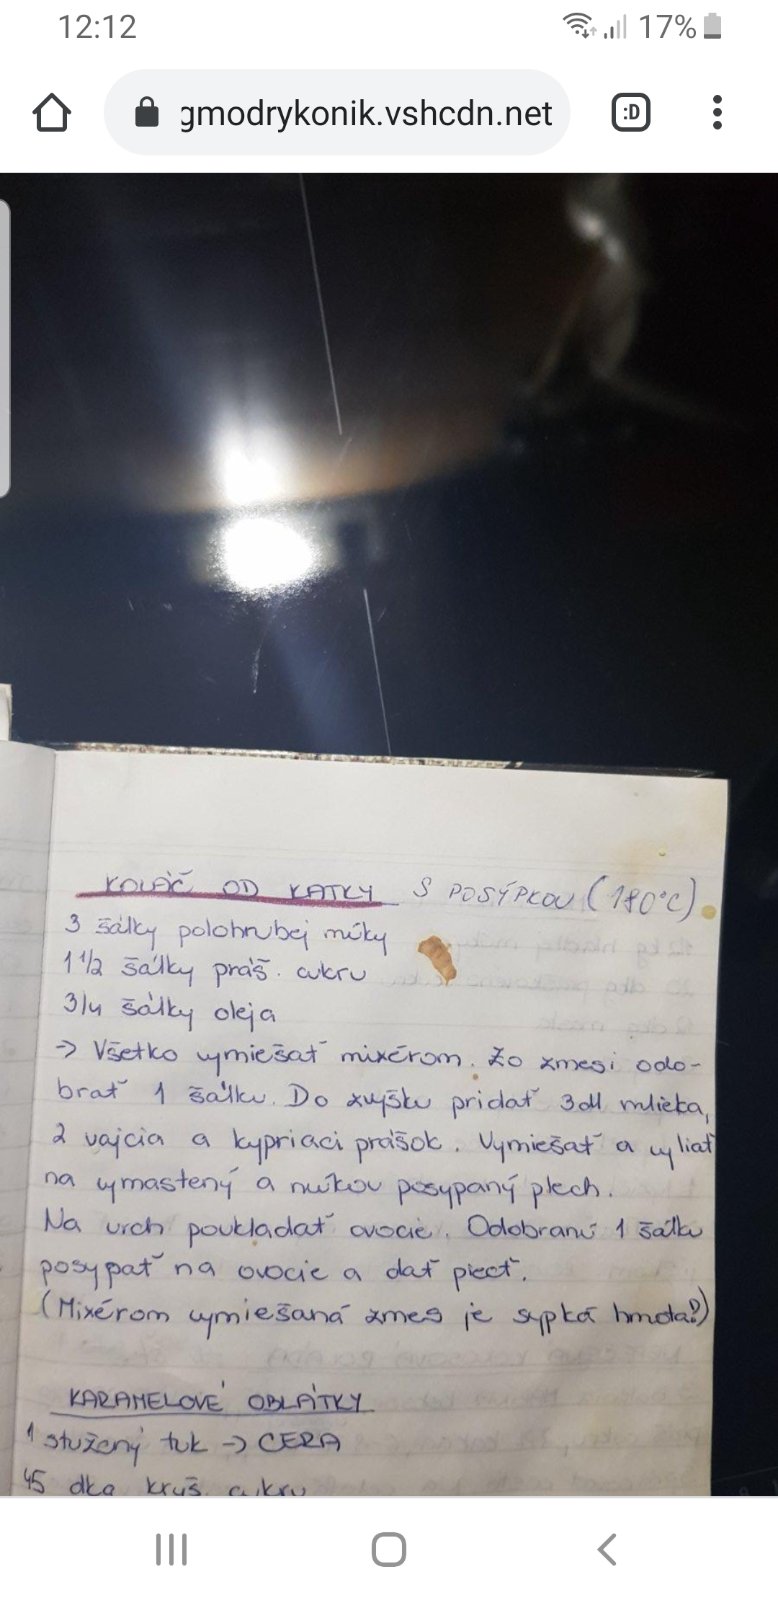 12:12
17%
gmodrykonik.vshcdn.net
:D
KOLÁČ OD KATKY S POSÝPKOU (180°C).
3 šálky polohrubej múky
1 1/2 šálky práš. cukru
3/4 šálky oleja
-> Všetko vymiešať mixérom. Zo zmesi odo-
brať 1 šálku. Do zvyšku pridať 3dl mlieka,
2 vajcia a kypriaci prášok. Vymiešať a vyliať
na vymastený a múkou posypaný plech.
Na vrch poukladať ovocie. Odobranú 1 šálku
posypať na ovocie a dať piecť.
(Mixérom vymiešaná zmes je sypká hmota?)
KARAMELOVÉ OBLÁTKY
1 stužený tuk -> CERA
45 dka kryš. cukru